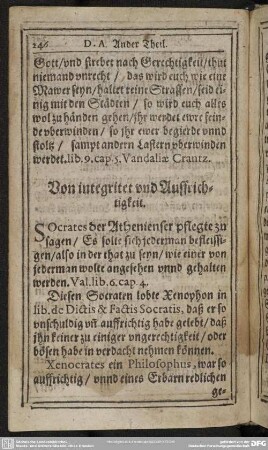 246 D. A. Ander Theil.
Gott/ vnd strebet nach Gerechtigkeit/ thut
niemand vnrecht/ das wird euch wie eine
Mawer seyn/ haltet reine Strassen/ seid ei-
nig mit den Städten/ so wird euch alles
wol zu händen gehen/ jhr werdet ewre fein-
de vberwinden/ so jhr ewer begierde vnnd
stoltz/ sampt andern Lastern vberwinden
werdet. lib. 9. cap. 5. Vandaliæ Crantz.
Von integritet vnd Auffrich-
tigkeit.
SOcrates der Athenienser pflegte zu
sagen/ Es solte sich jederman befleissi-
gen/ also in der that zu seyn/ wie einer von
jederman wolte angesehen vnnd gehalten
werden. Val. lib. 6. cap. 4.
Diesen Socraten lobte Xenophon in
lib. de Dictis & Factis Socratis, daß er so
vnschuldig vñ auffrichtig habe gelebt/ daß
jhn keiner zu einiger vngerechtigkeit/ oder
bösen habe in verdacht nehmen können.
Xenocrates ein Philosophus, war so
auffrichtig/ vnnd eines Erbarn redlichen
ge-